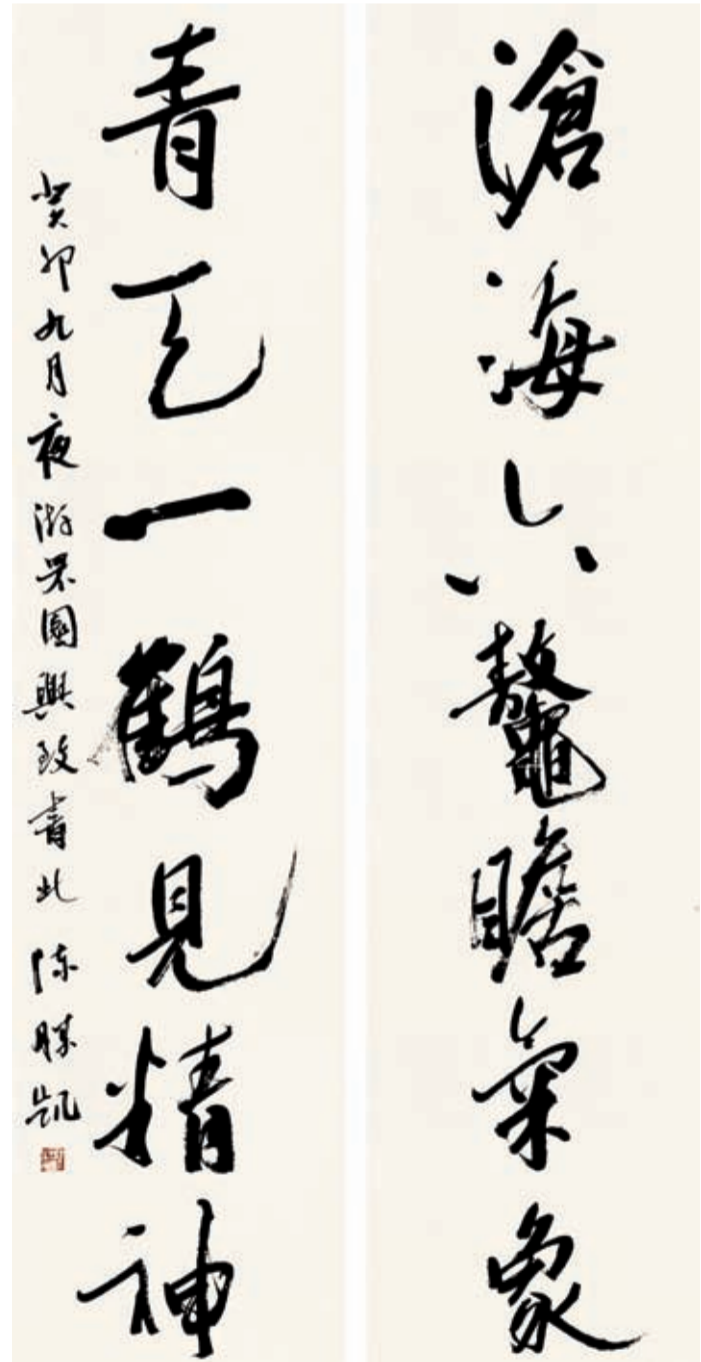 滄海六鼇瞻氣象
青天一鶴見精神
癸卯九月夜游罘園興致書此 陳勝凱